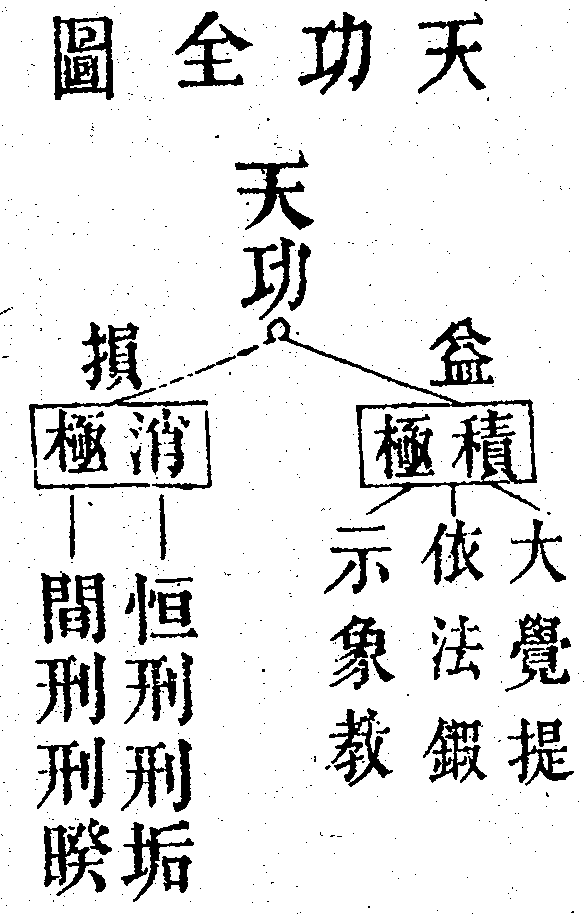 天功全圖
天功
益
積極
大覺提
依法鍛
示象教
損
消極
恒刑刑垢
間刑刑暌